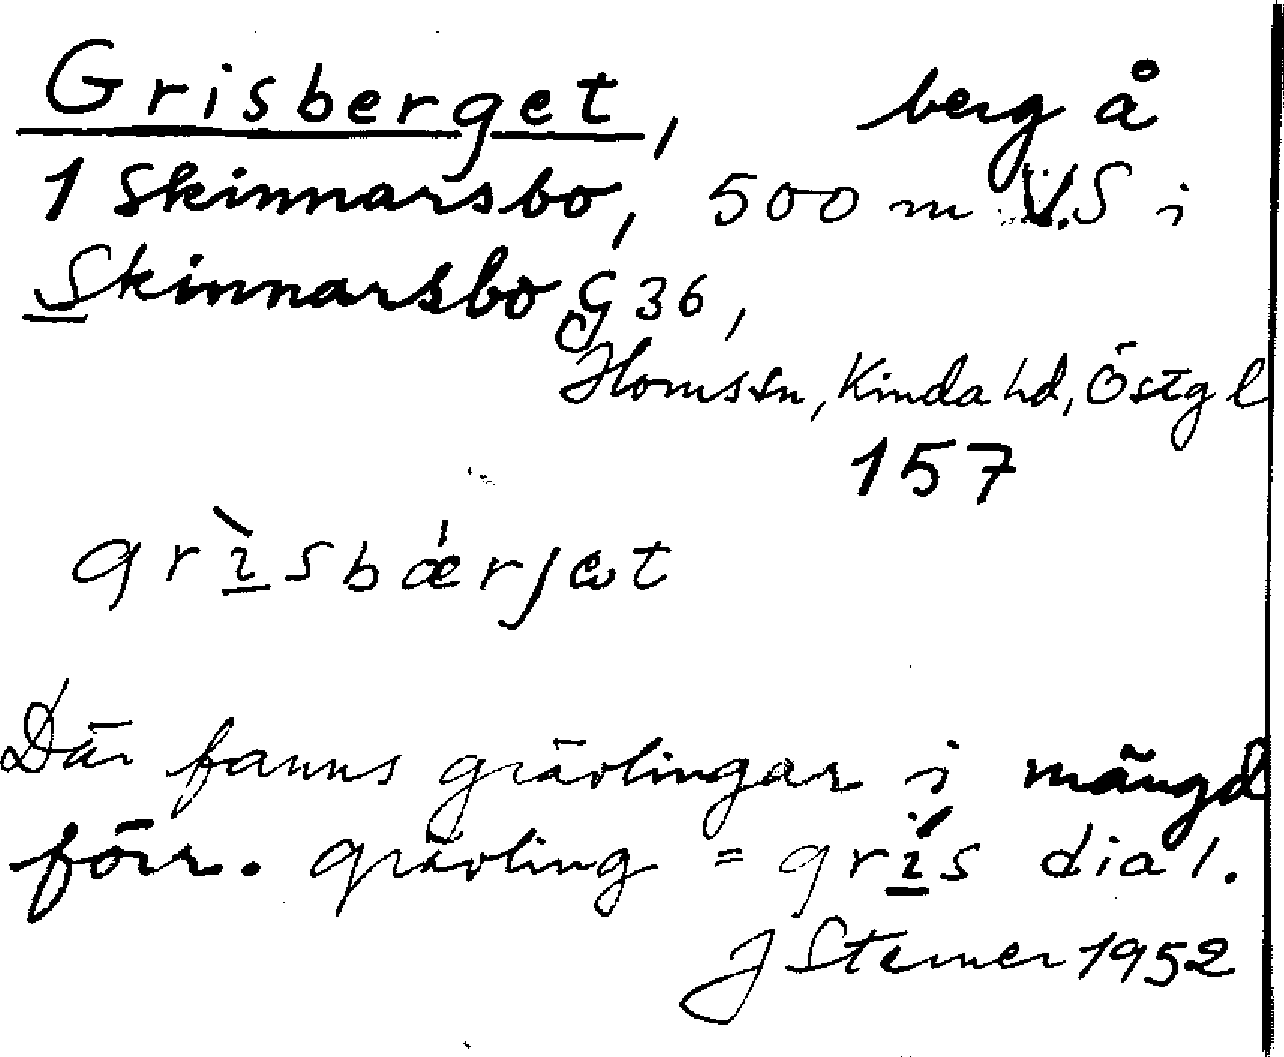 Grisberget, berg å
1 Skinnarsbo, 500 m V.S i
Skinnarsbo G 36,
Horns sn, Kinda hd, Östgl
157
grìsbǽrjət
Där fanns grävlingar i mängd
förr. grävling = grís dial.
J Stemer 1952